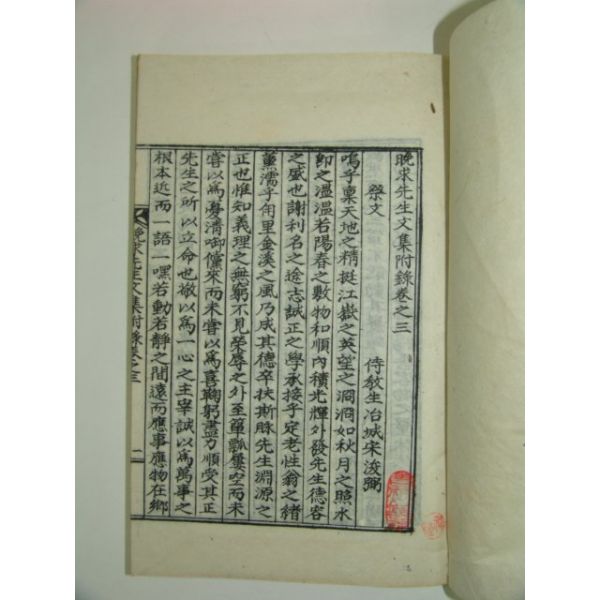 晚求先生文集附錄卷之三
祭文
侍敎生冶城宋浚弼
嗚乎稟天地之精挺江嶽之英望之洞洞如秋月之照水
卽之溫溫若陽春之敷物和順內積光輝外發先生德容
之盛也謝利名之途志誠正之學承接乎定老性翁之緖
薰濡乎甪里金溪之風乃成其德卒扶斯脉先生淵源之
正也惟知義理之無窮不見榮辱之外至簞瓢屢空而未
嘗以爲憂淸啣儻來而未嘗以爲喜鞠躬盡力順受其正
先生之所以立命也撤以爲一心之主宰誠以爲萬事之
根本近而一語一嘿若動若靜之間遠而應事應物在鄕
晚求先生文集附錄卷之三
一